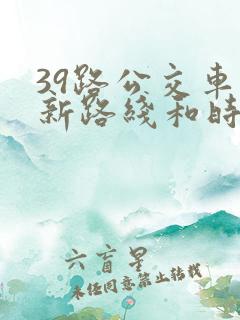 39路公交车
新路线和时
六盲星
未经同意禁止转载